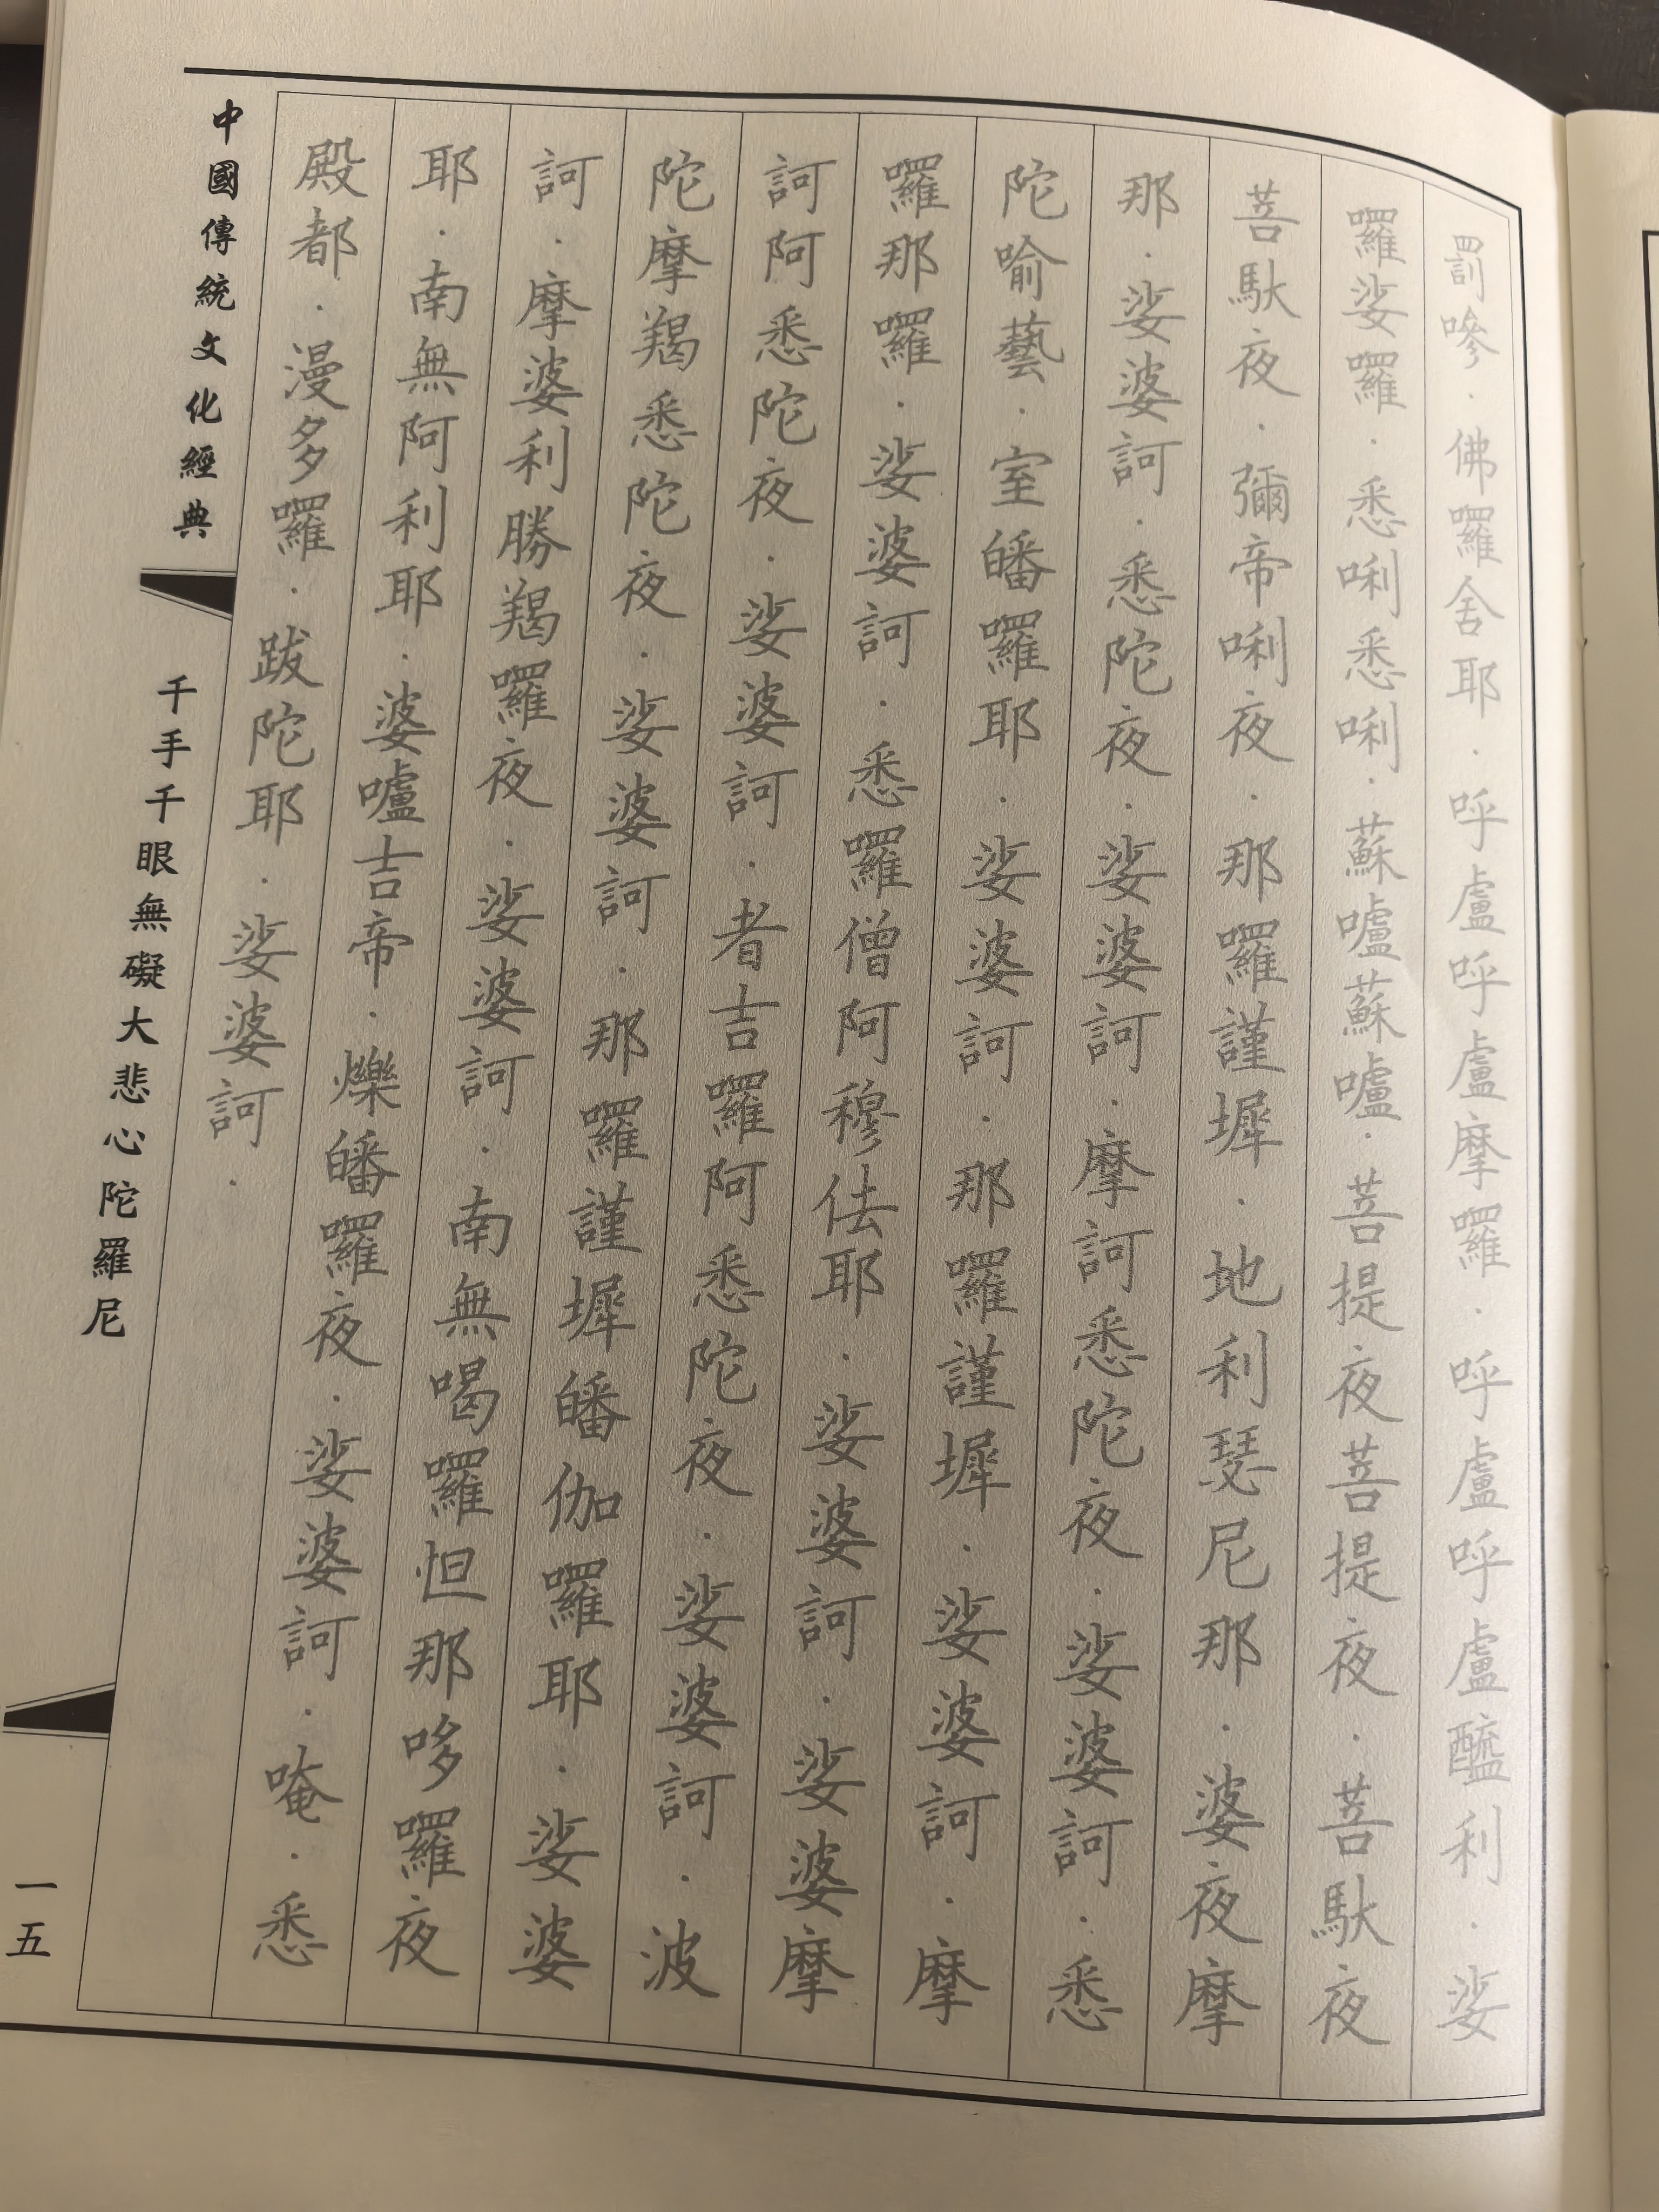 罰嘇．佛囉舍耶．呼盧呼盧摩囉．呼盧呼盧醯利．娑
囉娑囉．悉唎悉唎．蘇嚧蘇嚧．菩提夜菩提夜．菩馱夜
菩馱夜．彌帝唎夜．那囉謹墀．地利瑟尼那．婆夜摩
那．娑婆訶．悉陀夜．娑婆訶．摩訶悉陀夜．娑婆訶．悉
陀喻藝．室皤囉耶．娑婆訶．那囉謹墀．娑婆訶．摩
囉那囉．娑婆訶．悉囉僧阿穆佉耶．娑婆訶．娑婆摩
訶阿悉陀夜．娑婆訶．者吉囉阿悉陀夜．娑婆訶．波
陀摩羯悉陀夜．娑婆訶．那囉謹墀皤伽囉耶．娑婆
訶．摩婆利勝羯囉夜．娑婆訶．南無喝囉怛那哆囉夜
耶．南無阿利耶．婆嚧吉帝．爍皤囉夜．娑婆訶．唵．悉
殿都．漫多囉．跋陀耶．娑婆訶．
中國傳統文化經典
千手千眼無礙大悲心陀羅尼
一五